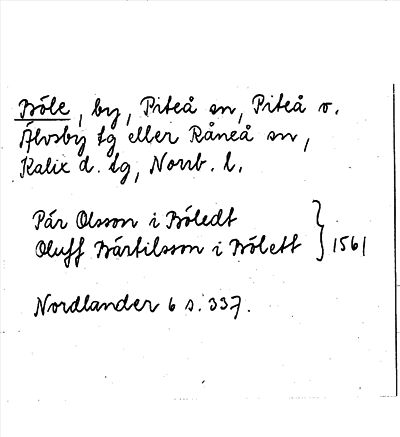 Böle, by, Piteå sn, Piteå o.
Älvsby tg eller Råneå sn,
Kalix d. tg, Norrb. l.
Pár Olsson i Bóledt
Oluff Bártilsson i Bólett } 1561
Nordlander 6 s. 337.